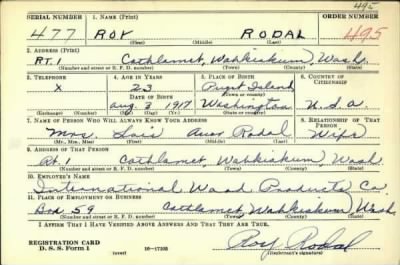 495
SERIAL NUMBER 1. NAME (Print) ORDER NUMBER
477 ROY RODAL 495
(First) (Middle) (Last)
2. ADDRESS (Print)
RT. 1 Cathlamet, Wahkiakum, Wash.
(Number and street or R. F. D. number) (Town) (County) (State)
3. TELEPHONE 4. AGE IN YEARS 5. PLACE OF BIRTH 6. COUNTRY OF CITIZENSHIP
X 23 Puget Island
DATE OF BIRTH (Town or county)
Aug 3 1917 Washington U.S.A.
(Exchange) (Number) (Mo.) (Day) (Yr.) (State or country)
7. NAME OF PERSON WHO WILL ALWAYS KNOW YOUR ADDRESS 8. RELATIONSHIP OF THAT PERSON
Mrs. Lois Rodal Wife
(Mr., Mrs., Miss) (First) (Middle) (Last)
9. ADDRESS OF THAT PERSON
Rt. 1 Cathlamet, Wahkiakum, Wash.
(Number and street or R. F. D. number) (Town) (County) (State)
10. EMPLOYER'S NAME
International Wood Products Co.
11. PLACE OF EMPLOYMENT OR BUSINESS
Box 59 Cathlamet, Wahkiakum, Wash
(Number and street or R. F. D. number) (Town) (County) (State)
I AFFIRM THAT I HAVE VERIFIED ABOVE ANSWERS AND THAT THEY ARE TRUE.
REGISTRATION CARD
D. S. S. Form 1 (over) 16-17105 Roy Rodal
(Registrant's signature)